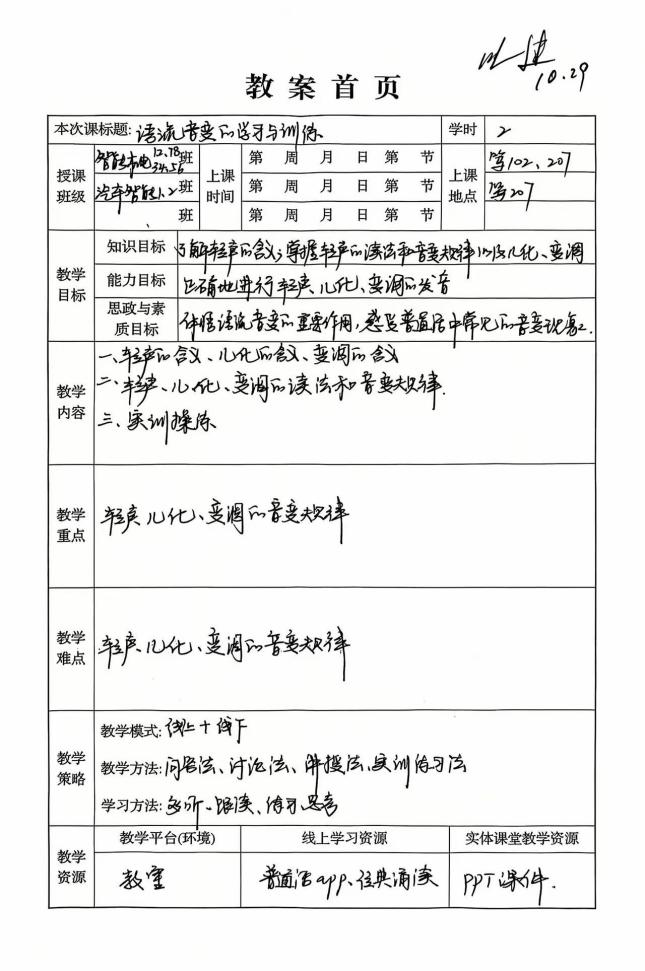 10.29
教案首页
本次课标题: 语流音变的学习与训练 学时 2
授课班级 智能 12.78 34.56 班 上课时间 第 周 月 日 第 节 上课地点 写102、207
汽车智能1.2班 第 周 月 日 第 节 写207
班 第 周 月 日 第 节
教学目标 知识目标 了解轻声的含义;掌握轻声的读法和音变规律以及儿化、变调
能力目标 正确地进行轻声、儿化、变调的发音
思政与素质目标 体悟语流音变的重要作用,感受普通话中常见的音变现象.
教学内容 一、轻声的含义、儿化的含义、变调的含义
二、轻声、儿化、变调的读法和音变规律.
三、实训操练
教学重点 轻声、儿化、变调的音变规律
教学难点 轻声、儿化、变调的音变规律
教学策略 教学模式: 线上+线下
教学方法: 问答法、讨论法、讲授法、实训练习法
学习方法: 多听、跟读、练习、思考
教学资源 教学平台(环境) 线上学习资源 实体课堂教学资源
教室 普通话app、经典诵读 PPT课件.